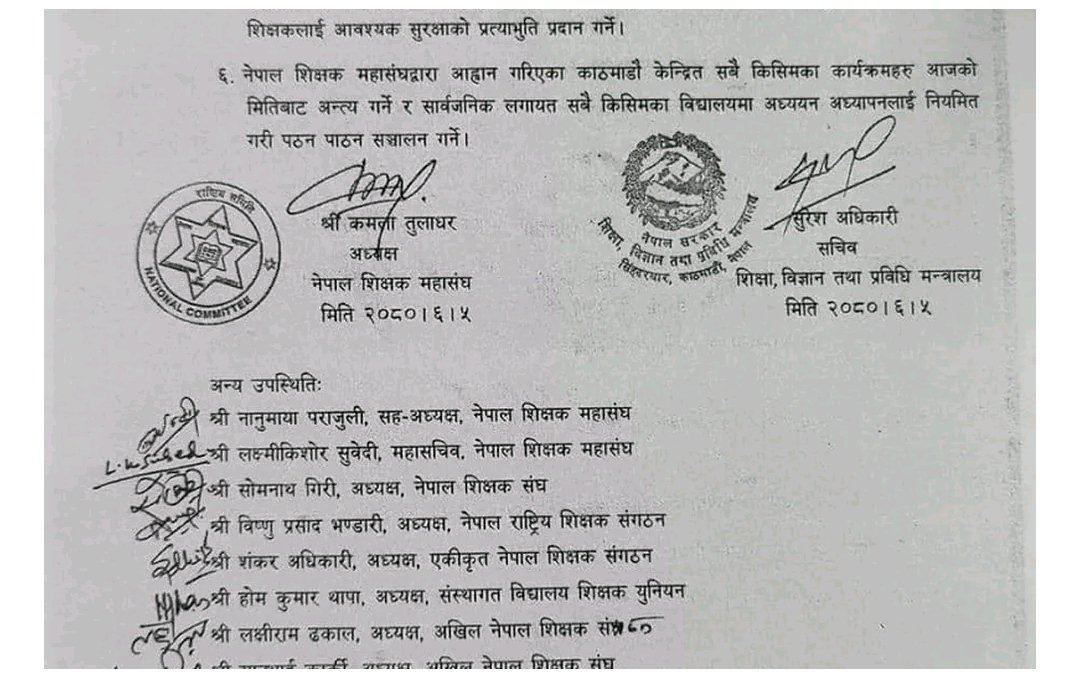 शिक्षकलाई आवश्यक सुरक्षाको प्रत्याभुति प्रदान गर्ने।
६. नेपाल शिक्षक महासंघद्वारा आह्वान गरिएका काठमाडौ केन्द्रित सबै किसिमका कार्यक्रमहरु आजको
मितिबाट अन्त्य गर्ने र सार्वजनिक लगायत सबै किसिमका विद्यालयमा अध्ययन अध्यापनलाई नियमित
गरी पठन पाठन सञ्चालन गर्ने।
राष्ट्रिय समिति
NATIONAL COMMITTEE
श्री कमला तुलाधर
अध्यक्ष
नेपाल शिक्षक महासंघ
मिति २०८०।६।५
नेपाल सरकार
शिक्षा, विज्ञान तथा प्रविधि मन्त्रालय
सिंहदरबार, काठमाडौं, नेपाल
सुरेश अधिकारी
सचिव
शिक्षा, विज्ञान तथा प्रविधि मन्त्रालय
मिति २०८०।६।५
अन्य उपस्थितिः
श्री नानुमाया पराजुली, सह-अध्यक्ष, नेपाल शिक्षक महासंघ
श्री लक्ष्मीकिशोर सुवेदी, महासचिव, नेपाल शिक्षक महासंघ
श्री सोमनाथ गिरी, अध्यक्ष, नेपाल शिक्षक संघ
श्री विष्णु प्रसाद भण्डारी, अध्यक्ष, नेपाल राष्ट्रिय शिक्षक संगठन
श्री शंकर अधिकारी, अध्यक्ष, एकीकृत नेपाल शिक्षक संगठन
श्री होम कुमार थापा, अध्यक्ष, संस्थागत विद्यालय शिक्षक युनियन
श्री लक्षीराम ढकाल, अध्यक्ष, अखिल नेपाल शिक्षक
कार्की, अध्यक्ष, अखिल नेपाल शिक्षक संघ